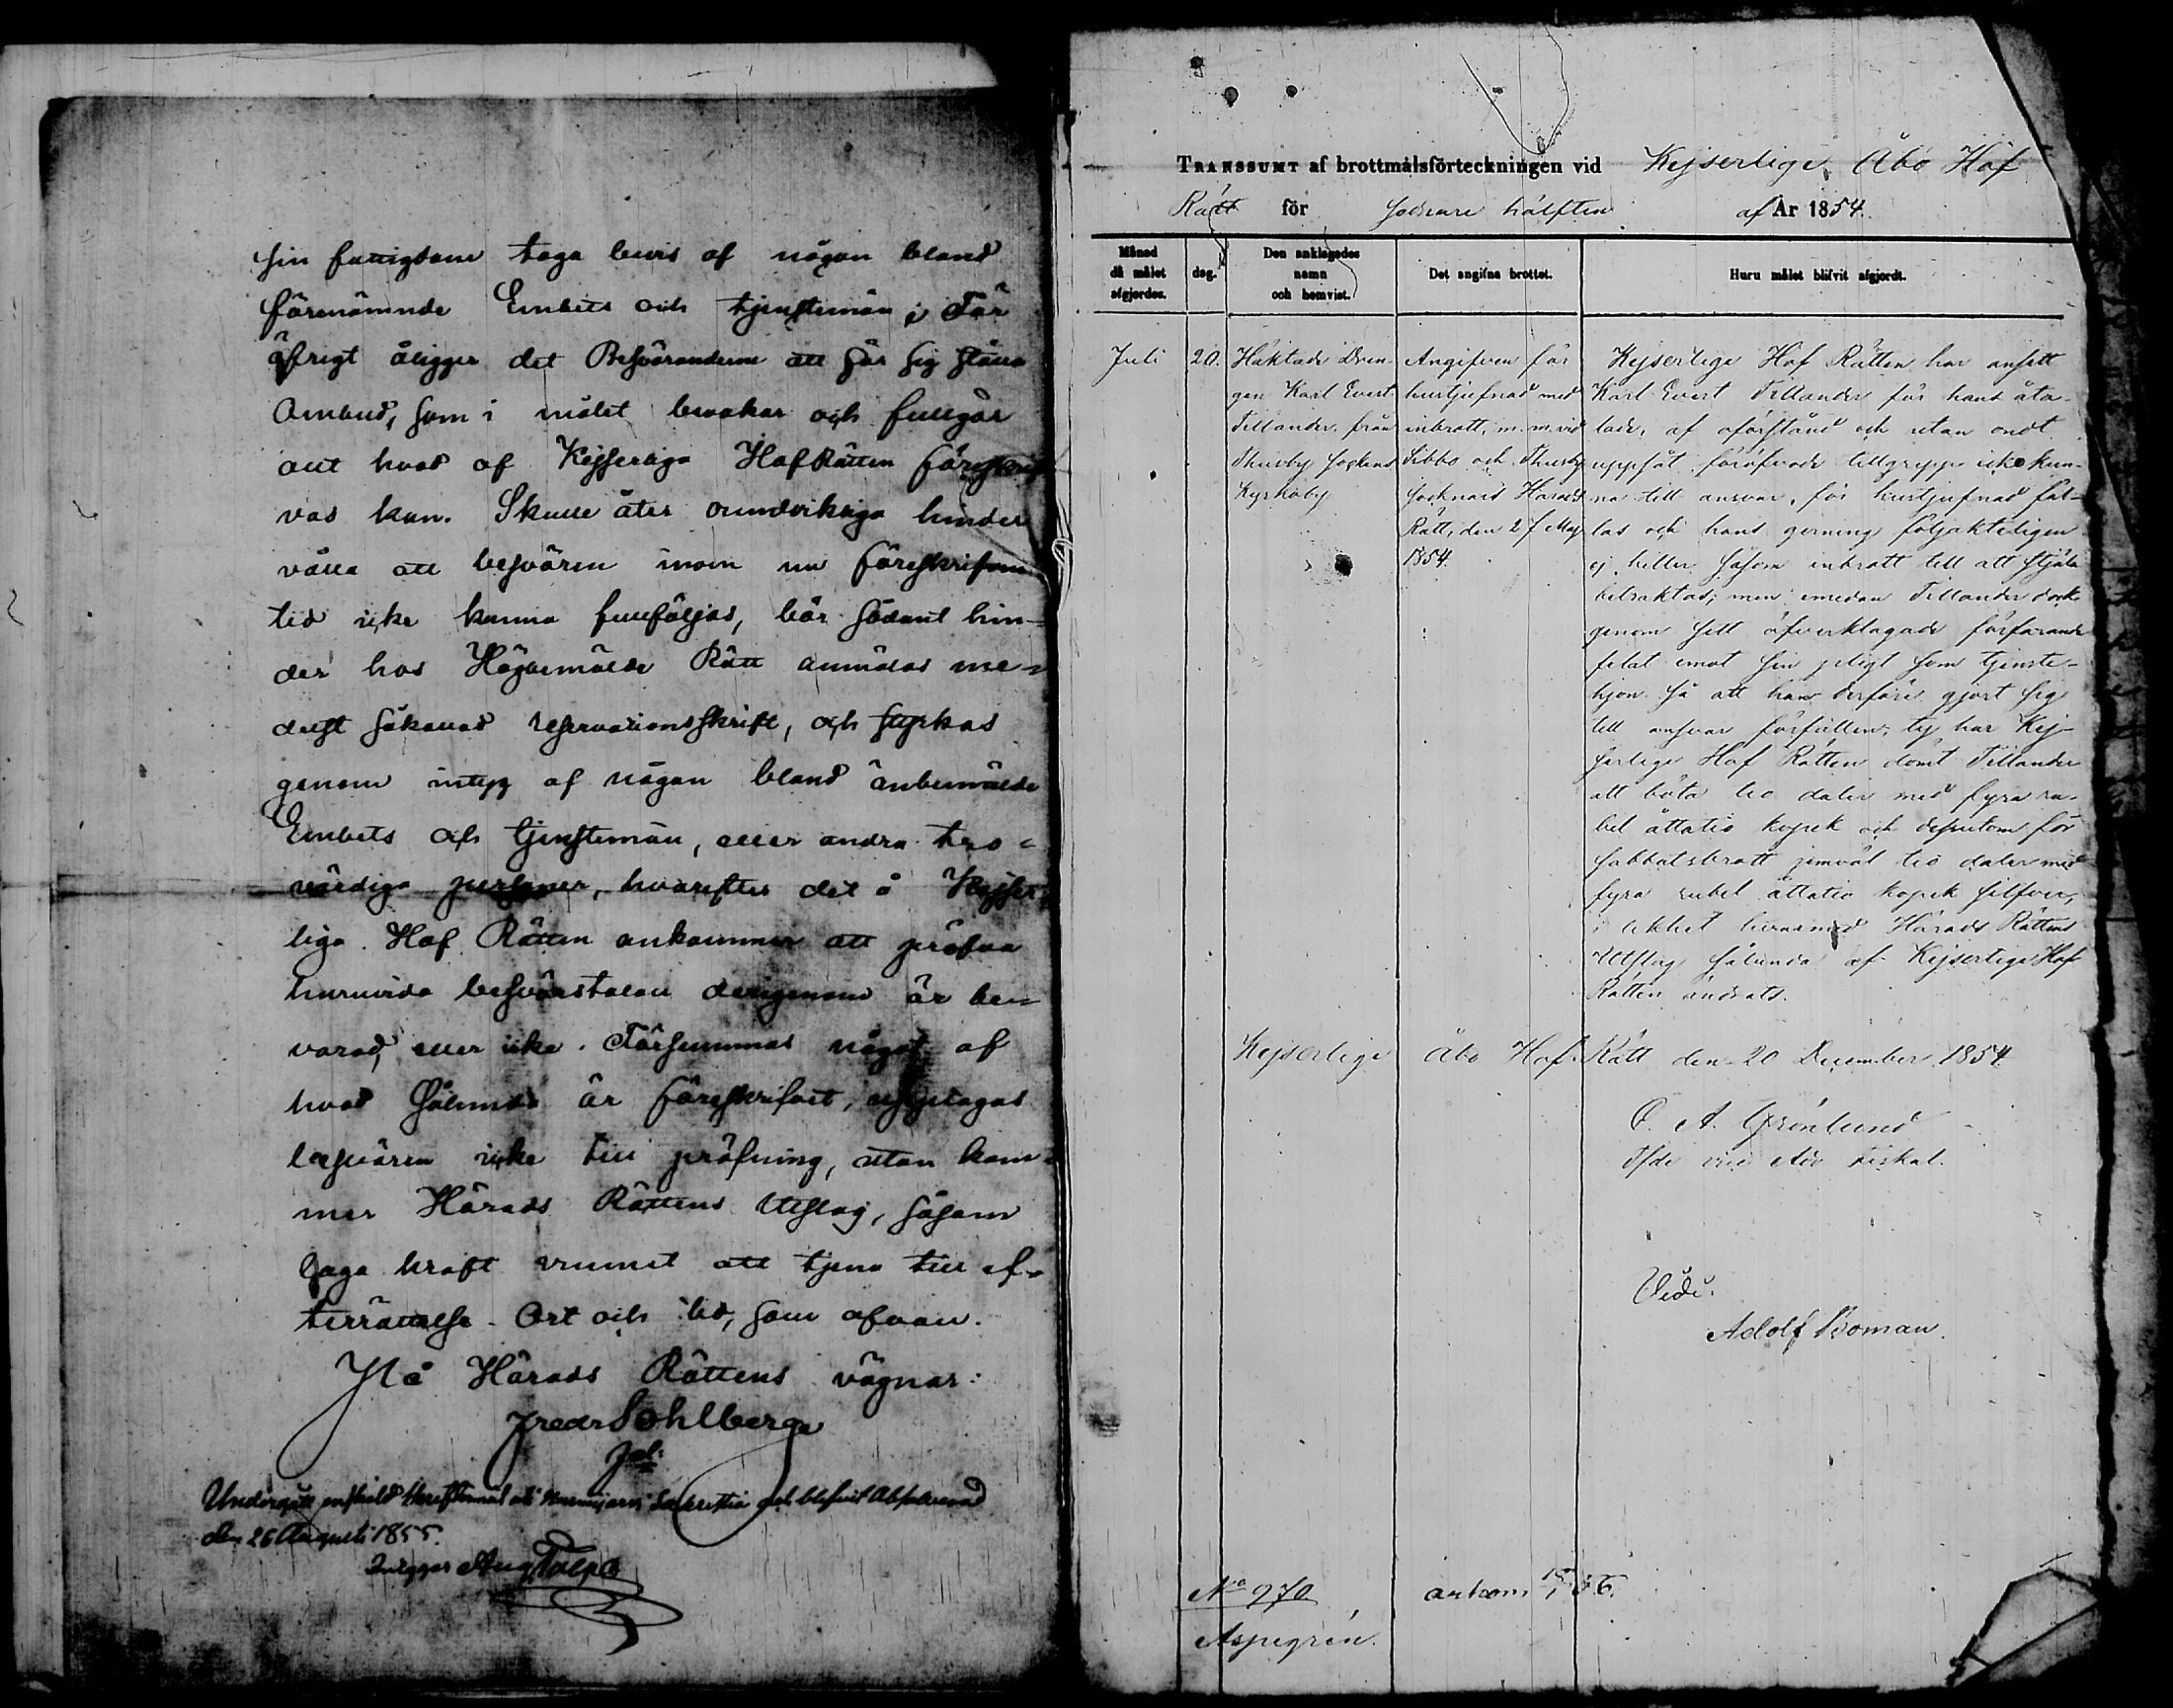 sin fattigdom taga bewis af någon bland
förenämnde Embets och tjensteman; För
öfrigt åligger det Besvöranderne att för sig ställa
Ombud, som i målet bevakar och fullgör
allt hvad af Kejserliga HofRätten föreskrif
vas kan. Skulle åter oundvikliga hinder
vålla att besvären inom nu föreskrifven
tid icke kunna fullföljas, bör sådant hin-
der hos Högbemälde Rätt anmälas me-
delst sökands reservationsskrift, och styrkas
genom intyg af någon bland ånbemälde
Embets och tjensteman, eller andra tro-
värdiga personer, hvarefter det å Kejser
liga Hof Rätten ankommer att pröfva
huruvida besvärstalan derigenom är be-
varad, eller icke. Försummas något af
hvad sålunda är föreskrifvet, upptagas
besvären icke till pröfning, utan kom-
mer Härads Rättens Utslag, såsom
laga kraft vunnet att tjena till ef-
terrättelse. Ort och tid, som ofvan.
På Härads Rättens vägnar:
Fredr Sohlberg
Undergått enskild skriftermål uti Nurmijärvi Sacristia och blifvit Absolverad
den 26 Augusti 1855.
intygar Aug
TRANSSUMT af brottmålsförteckningen vid Kejserliga Åbo Hof
Rätt för sednare hälften af År 1854.
Månad då målet afgjordes.
dag.
Den anklagades namn och hemvist.
Det angifna brottet.
Huru målet blifvit afgjordt.
Juli 20.
Häktade Drän-
gen Karl Evert
Tillander från
Thusby Sockens
Kyrkoby
Angifven för
hustjufnad med
inbrott, m. m. vid
Sibbo och Thusby
Socknars Härads
Rätt, den 2 f Maj
1854.
Kejserliga Hof Rätten har ansett
Karl Evert Tillander för hans åta-
lade, af oförstånd och utan ondt
uppsåt föröfvade tillgrepp icke kun-
na till ansvar för hustjufnad fäl-
las och hans gerning följakteligen
ej heller såsom inbrott till att stjäla
betraktas; men emedan Tillander dock
genom sitt öfverklagade förfarande
felat emot sin pligt som tjenste-
hjon så att han derföre gjort sig
till ansvar förfallen; ty har Kej-
serliga Hof Rätten dömt Tillander
att böta tio daler med fyra ru-
bel åttatio kopek och dessutom för
sabbatsbrott jemväl tio daler med
fyra rubel åttatio kopek silfver,
i likhet hvarmed Härads Rättens
Utslag sålunda af Kejserliga Hof
Rätten ändrats.
Kejserliga Åbo Hof Rätt den 20 December 1854
O. A. Grönlund
Adv Fiskal.
Vidi.
Adolf Boman.
No 970
Aspegrén.
ankom